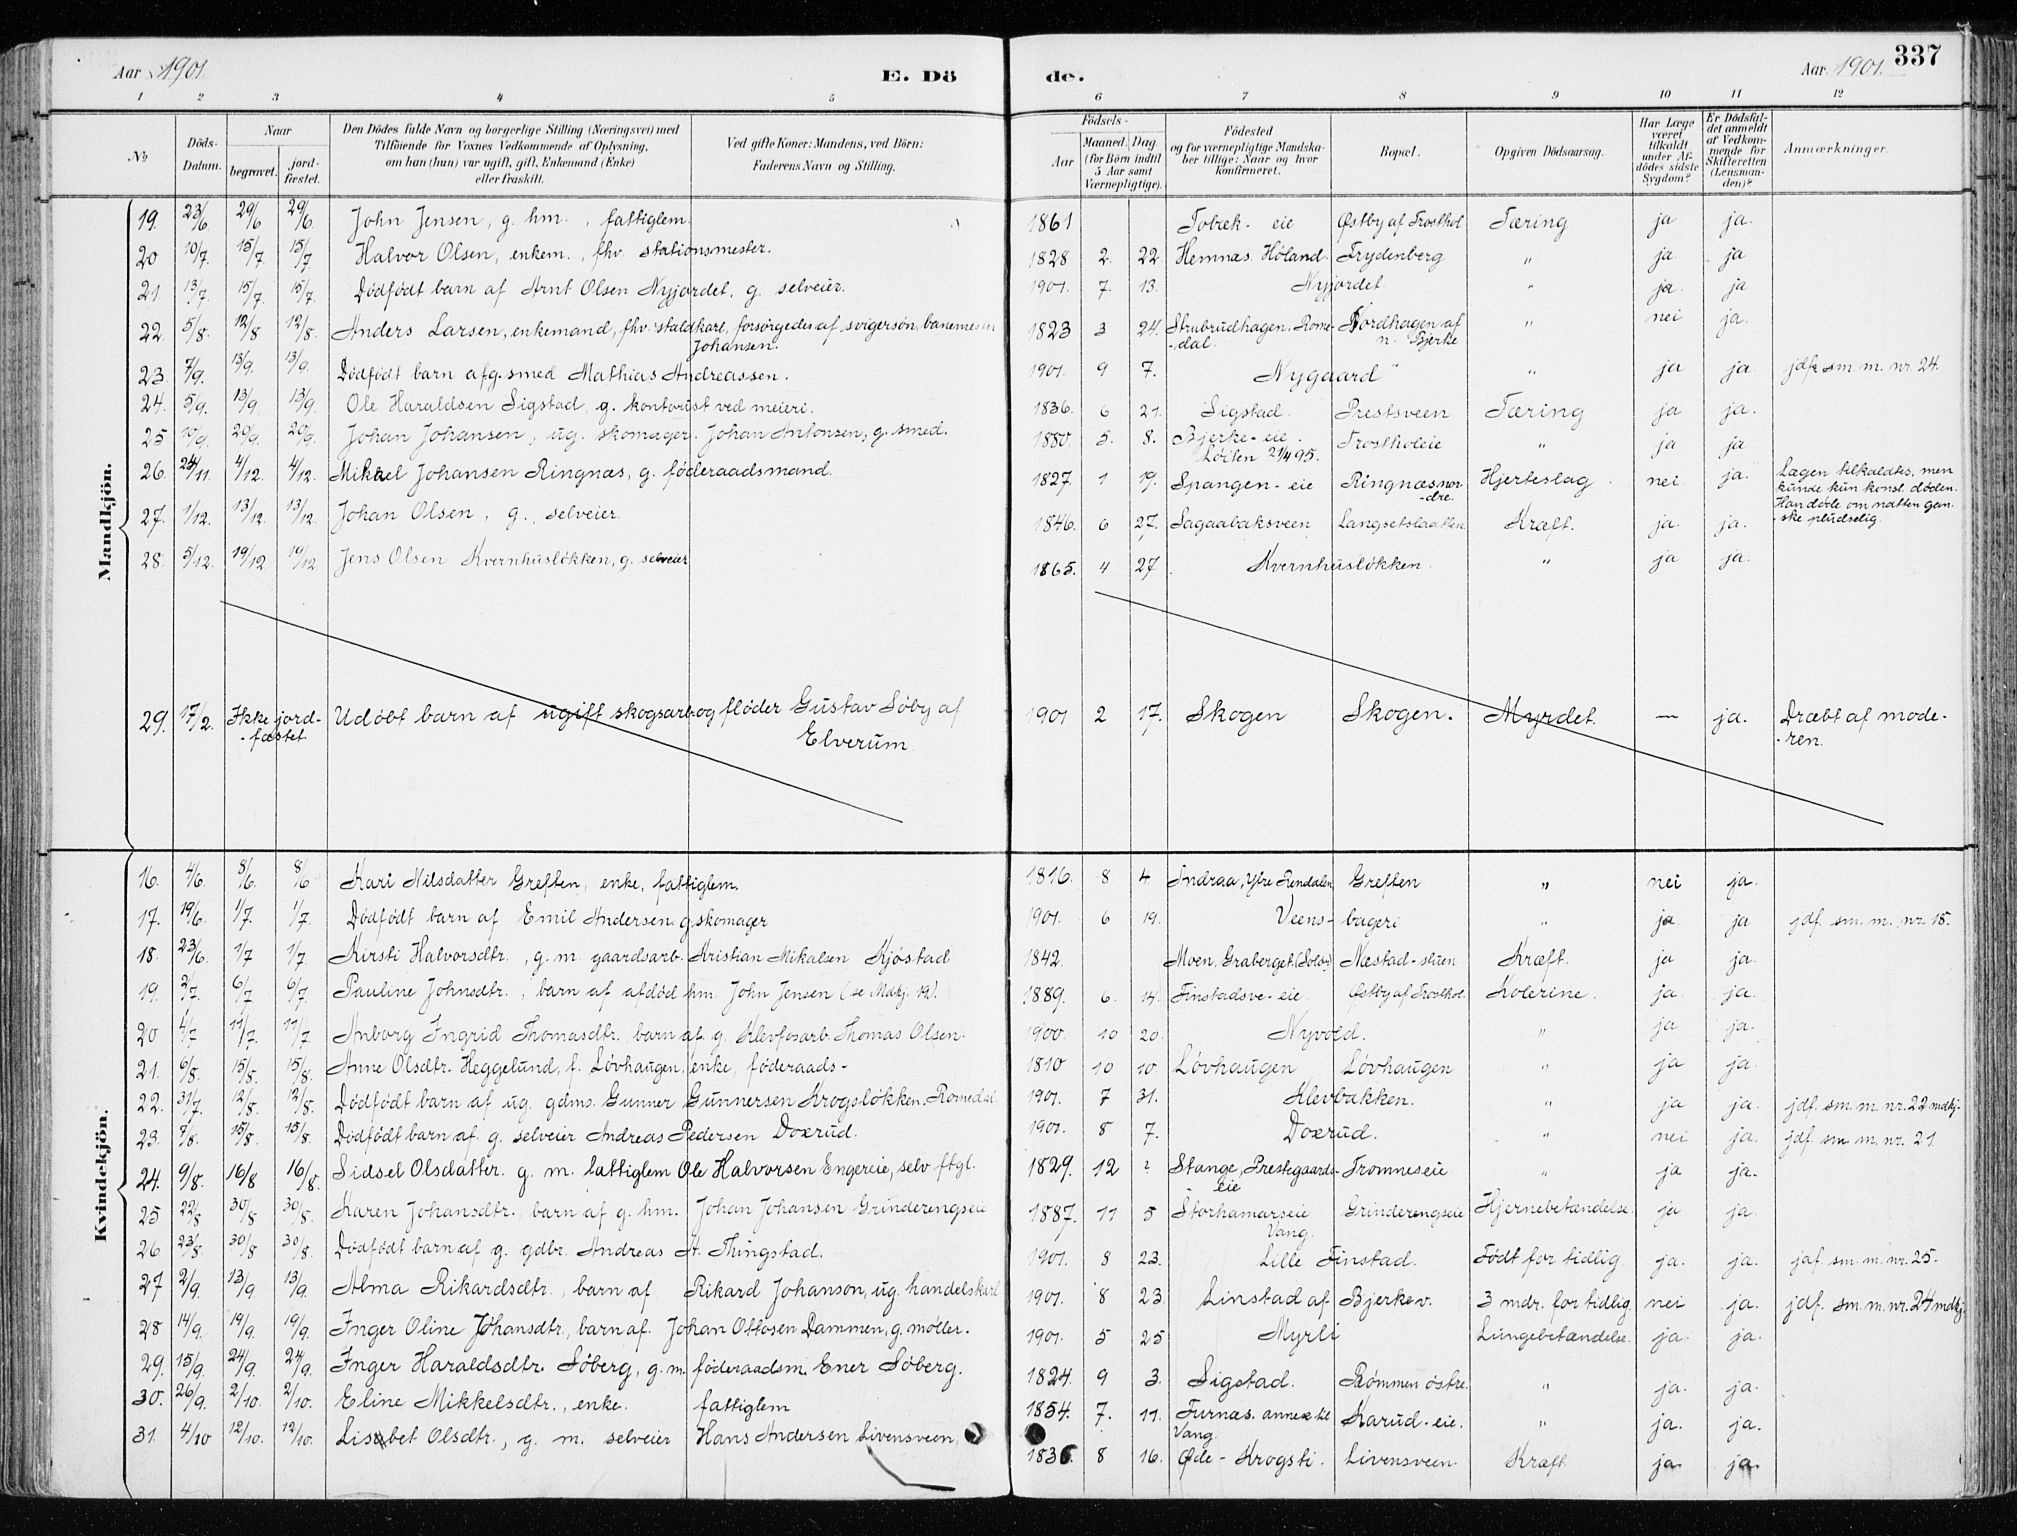 Aar 1901.
E. Dö
de.
Aar 1901.
337
1 2 3 4 5 6 7 8 9 10 11 12
No
Döds-Datum.
Naar
begravet.
jord-fæstet.
Den Dödes fulde Navn og borgerlige Stilling (Næringsvei) med
Tilföiende for Voxnes Vedkommende af Oplysning,
om han (hun) var ugift, gift, Enkemand (Enke)
eller fraskilt.
Ved gifte Koner: Mandens, ved Börn:
Faderens Navn og Stilling.
Födsels-
Aar
Maaned. Dag.
(for Börn indtil
5 Aar samt
Værnepligtige).
Födested
og for værnepligtige Mandska-
ber tillige: Naar og hvor
konfirmeret.
Bopæl.
Opgiven Dödsaarsag.
Har Læge
været
tilkaldt
under Af-
dödes sidste
Sygdom?
Er Dödsfal-
det anmeldt
af Vedkom-
mende for
Skifteretten
(Lensman-
den)?
Anmærkninger.
Mandkjön.
19. 23/6 29/6 29/6. John Jensen, g. hm., fattiglem. 1861 Tobæk-eie Østby af Frosthol Tæring ja ja.
20 10/7. 15/7 15/7. Halvor Olsen, enkem., fhv. stationsmester. 1828 2. 22. Hemnæs, Høland. Frydenberg " ja. ja
21 13/7. 15/7. 15/7. Dødfødt barn af Arnt Olsen Nyjordet, g. selveier. 1901. 7. 13. Nyjordet " ja. ja
22. 5/8. 12/8 12/8. Anders Larsen, enkemand, fhv. staldkarl, forsørgedes af svigersøn, banemester
Johansen. 1823 3 24. Strubrudhagen, Rome-
-dal. Nordhagen af
n. Bjerke " nei ja.
23. 7/9. 13/9. 13/9. Dødfødt barn af g. smed Mathias Andreassen. 1901. 9 7. Nygaard " ja ja jdf. sm. m. nr. 24.
24. 5/9. 13/9 13/9. Ole Haraldsen Sigstad, g. kontorist ved meieri. 1836. 6 21. Sigstad. Prestsveen Tæring ja ja.
25 10/9. 20/9. 20/9. Johan Johansen, ug. skomager. Johan Antonsen, g. smed. 1880. 5. 8. Bjerke-eie.
Løiten 21/4 95. Frostholeie " ja ja
26. 24/11. 4/12. 4/12. Mikkel Johansen Ringnæs, g. føderaadsmand. 1827. 1 19. Spangen-eie Ringnæs nor-
-dre. Hjerteslag. nei. ja. Lægen tilkaldtes, men
kunde kun konst. døden.
Han døde om natten gan-
-ske pludselig.
27. 1/12. 13/12. 13/12. Johan Olsen, g. selveier. 1846. 6 27. Sagaabaksveen Langsetslaatten Kræft. ja. ja.
28. 5/12. 19/12 19/12 Jens Olsen Kvernhusløkken, g. selveier 1865. 4 27. Kvernhusløkken. " ja ja.
29. 17/2. Ikke jord-
-fæstet. Udøbt barn af ugift skogsarb. og fløder Gustav Søby af
Elverum. 1901 2 17. Skogen Skogen. Myrdet. — ja. Dræbt af mode-
-ren.
Kvindekjön.
16. 4/6. 8/6. 8/6 Kari Nilsdatter Greften, enke, fattiglem. 1816. 8 4. Indraa, Ytre Rendalen Greften " nei ja.
17. 19/6. 1/7. 1/7. Dødfødt barn af Emil Andersen g. skomager 1901. 6 19. Veens-bageri " ja ja jdf. sm. m. nr. 18.
18. 23/6. 1/7 1/7. Kirsti Halvorsdtr., g. m. gaardsarb. Kristian Mikalsen Kjøstad 1842. Moen, Graberget (Solør) Næstad-stuen Kræft. ja ja.
19. 2/7. 6/7 6/7. Pauline Johnsdtr., barn af afdød hm. John Jensen (se Mdkj. 19). 1889. 6. 14. Finstadsve-eie. Østby af Frosthol Kolerine. ja. ja.
20 4/7 11/7. 11/7 Anborg Ingrid Thomasdtr. barn af g. Klevfosarb. Thomas Olsen. 1900. 10 20. Nyvold. " ja ja.
21. 6/8. 15/8. 15/8. Anne Olsdtr. Heggelund, f. Løvhaugen, enke, føderaads- 1810 10 10. Løvhaugen Løvhaugen " ja ja.
22. 31/7. 12/8. 12/8. Dødfødt barn af ug. gdms. Gunner Gunnersen Krogsløkken, Romedal 1901. 7 31. Klevbakken. " ja ja. jdf. sm. m. nr. 22 mdkj.
23. 7/8. 15/8. 15/8. Dødfødt barn af g. selveier Andreas Pedersen Doxrud. 1901. 8 7. Doxrud. " nei ja. jdf. sm. m. nr. 21
24. 9/8. 16/8 16/8. Sidsel Olsdatter. g. m. fattiglem Ole Halvorsen Engereie, selv ftgl. 1829. 12 ? Stange, Prestegaards-
eie Fromneseie " ja ja.
25 22/8 30/8 30/8. Karen Johansdtr., barn af g. hm. Johan Johansen Grinderengseie 1887. 11 5 Storhamarseie
Vang. Grinderengseie Hjernebetændelse. ja ja.
26. 23/8. 30/8 30/8. Dødfødt barn af g. gdbr. Andreas A. Thingstad. 1901. 8 23. Lille Finstad. Født for tidlig ja. ja. jdf. sm. m. nr. 25.
27 2/9. 13/9 13/9. Alma Rikardsdtr., barn af Rikard Johanson, ug. handelskarl 1901. 8 23. Linstad af Bjerke v. 3 mdr. for tidlig. nei ja. jdf. sm. m. nr. 24 mdkj.
28 14/9. 19/9. 19/9. Inger Oline Johansdtr., barn af. Johan Ottosen Dammen, g. møller. 1901. 5 25 Myrli Lungebetændelse. ja. ja.
29. 15/9. 24/9. 24/9. Inger Haraldsdtr. Søberg, g. m. føderaadsm. Ener Søberg. 1824. 9 3. Sigstad. Rømmen østre. " ja. ja.
30. 26/9. 2/10. 2/10. Eline Mikkelsdtr., enke. fattiglem 1854. 7. 11. Furnæs. annex til
Vang. Karud-eie. " ja. ja.
31. 4/10 12/10. 12/10. Lisabet Olsdtr., g. m. selveier Hans Andersen Livensveen, 1836. 8 16. Øde-Krogsti. Livensveen. Kræft. ja ja